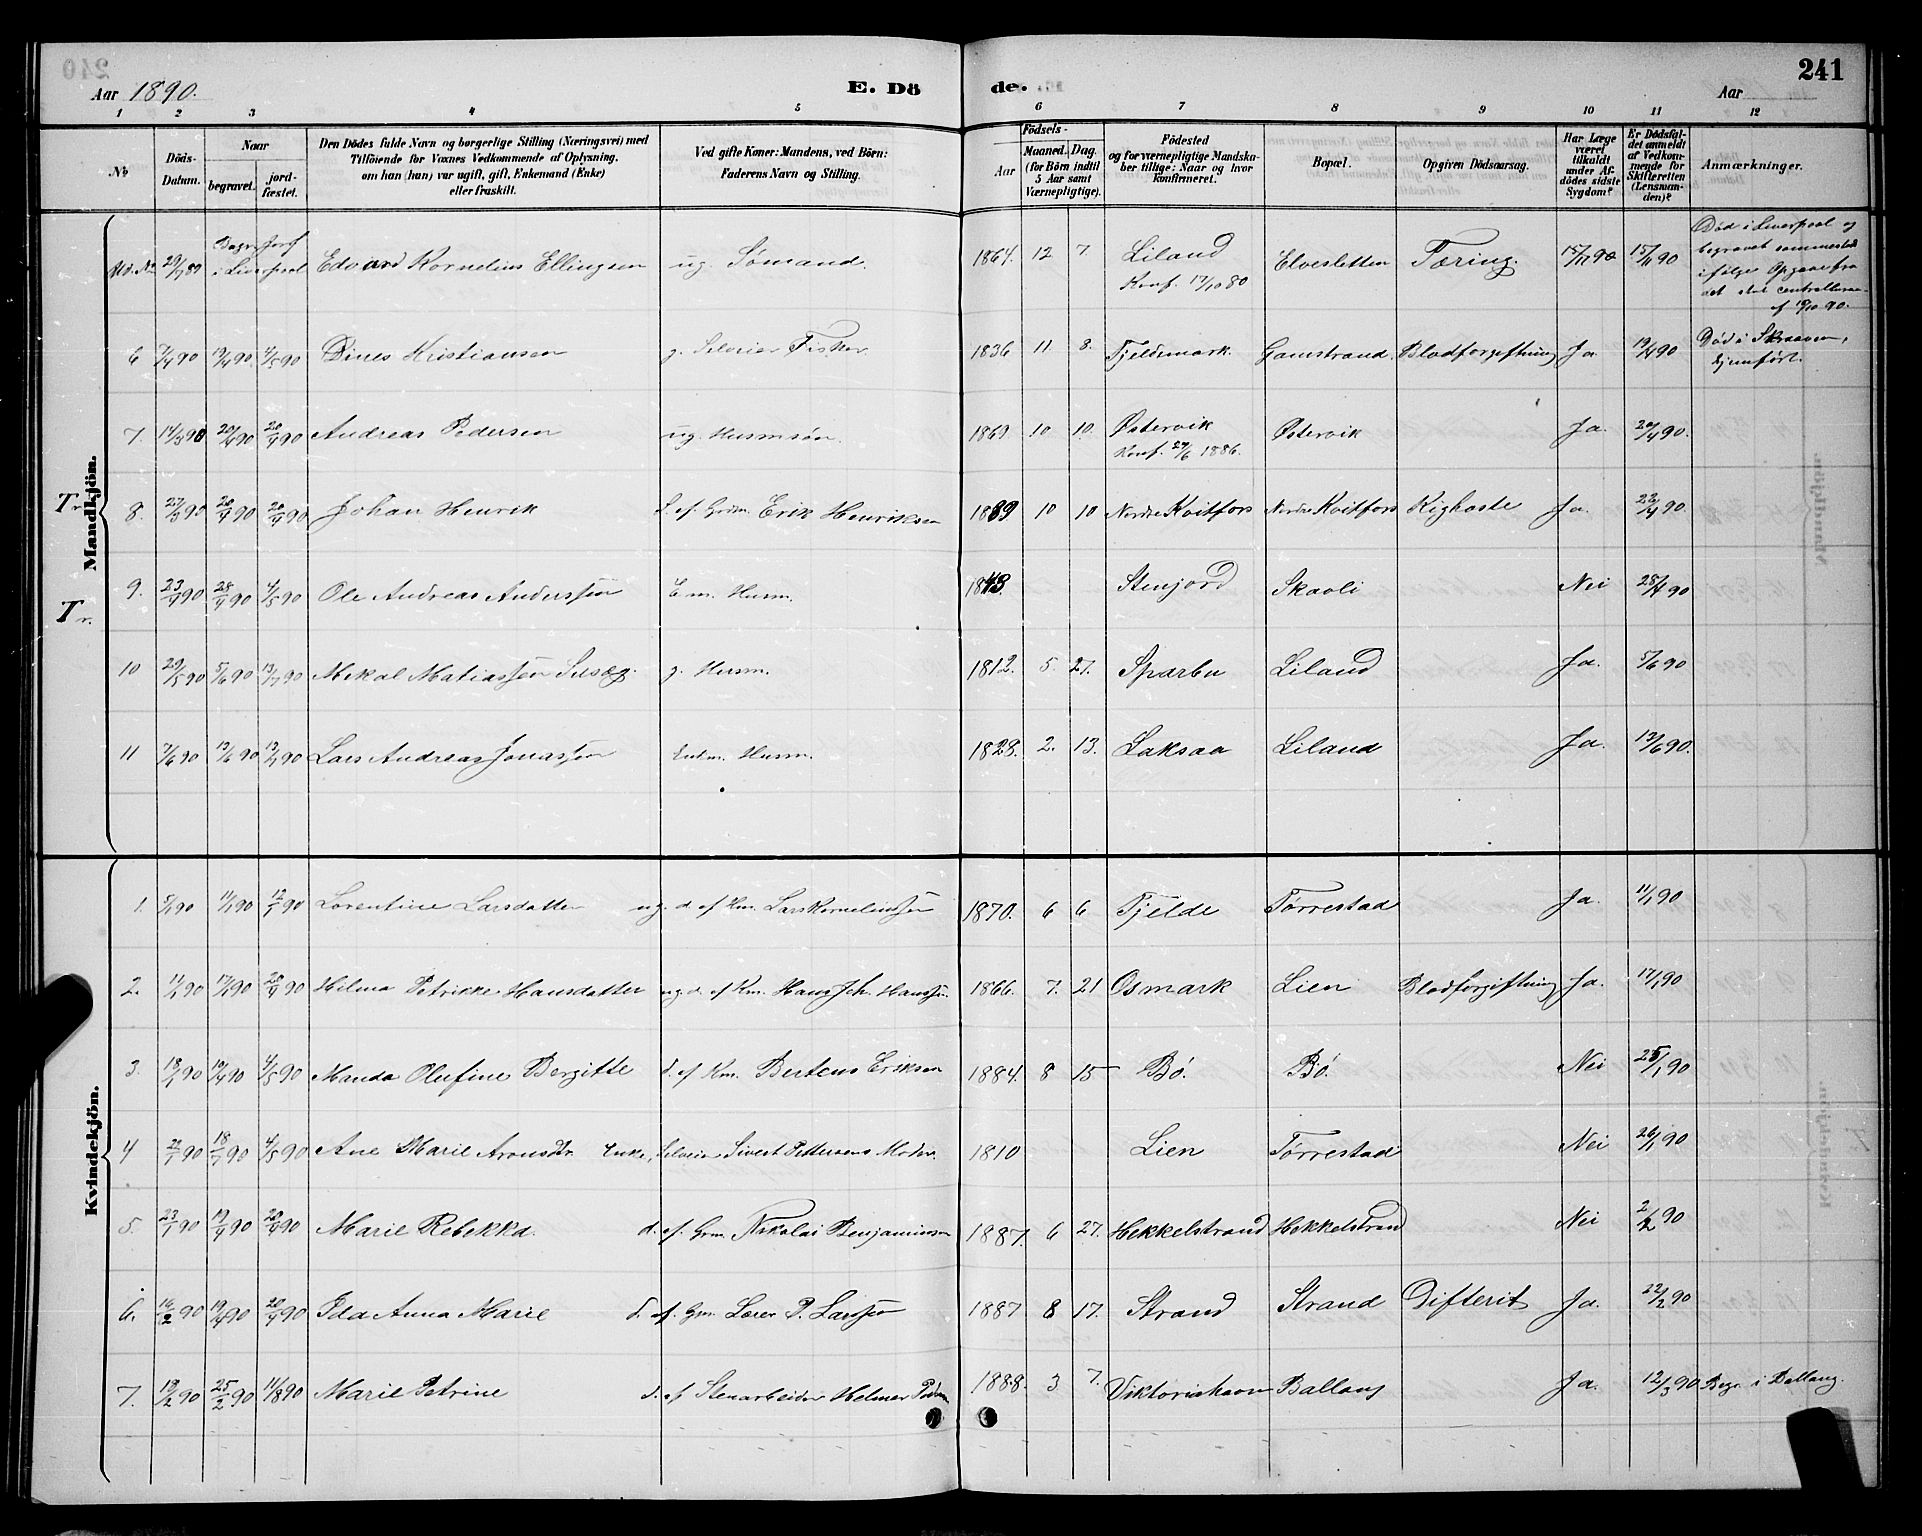 240
Aar 1890.
E. Dö
de.
241
Aar
1 2 3 4 5 6 7 8 9 10 11 12
No
Döds-Datum.
Naar
begravet.
jord-fæstet.
Den Dödes fulde Navn og borgerlige Stilling (Næringsvei) med
Tilföiende for Voxnes Vedkommende af Oplysning,
om han (hun) var ugift, gift, Enkemand (Enke)
eller fraskilt.
Ved gifte Koner: Mandens, ved Börn:
Faderens Navn og Stilling.
Födsels-
Aar
Maaned. Dag.
(for Börn indtil
5 Aar samt
Værnepligtige).
Födested
og for værnepligtige Mandska-
ber tillige: Naar og hvor
konfirmeret.
Bopæl.
Opgiven Dödsaarsag.
Har Læge
været
tilkaldt
under Af-
dödes sidste
Sygdom?
Er Dödsfal-
det anmeldt
af Vedkom-
mende for
Skifteretten
(Lensman-
den)?
Anmærkninger.
Mandkjön.
Ud. No 29/9 89 Begr. Jordf. i Liverpool Edvard Kornelius Ellingsen ug. Sömand. 1864. 12 7 Liland Elvesletten Tæring. 15/11 90 15/11 90 Död i Liverpool og
Konf. 17/10 80 begravet sammested
ifölge Opgave fra
det stat. centralbureau
af 19/10 90.
6 7/4 90 19/4 90 4/5 90 Dines Kristiansen g. Fisker. 1836 11. 8. Fjeldemark. Gamstrand. Blodforgiftning Ja. 19/4 90 Död i Skraaven,
hjemfört.
7. 14/3 90 20/4 90 20/4 90 Andreas Pedersen ug. Husmsön. 1869. 10 10. Østervik Østervik Ja. 20/4 90.
Konf. 27/6 1886.
Tr. 8. 27/3 90 20/4 90 20/4 90 Johan Henrik S. af. Grdm. Erik Henriksen 1889 10 10 Nordre Kvitfors Nordre Kvitfors Kighoste Ja. 22/4 90
Tr. 9. 23/4 90 28/4 90 4/5 90 Ole Andreas Anderssen Em. Husm. 1843. Stenjord Skavli Nei 28/4 90
10 29/5 90 5/6 90 13/7 90 Mikal Matiassen g. Husm. 1812. 5. 27. Sparbu Liland Ja. 5/6 90
11 7/6 90 13/6 90 13/7 90 Lars Andreas Jonassen Enkm. Husm. 1828. 2. 13. Laksaa Liland Ja. 13/6 90.
Kvindekjön.
1. 5/1 90 11/1 90 12/1 90 Lorentine Larsdatter ug. d. af Km. Lars Korneliussen 1870. 6 6 Fjelde Törrestad Ja. 11/1 90
2. 11/1 90 17/1 90 20/4 90 Hilma Petrikke Hansdatter ug. d. af Km. Hans Joh. Hanssen. 1866. 7. 21 Osmark Lien Blodforgiftning Ja. 17/1 90
3. 18/1 90 19/4 90 4/5 90 Manda Olufine Bergitte d. af Km. Berteus Eriksen 1884. 8 15 Bö. Bö. Nei 25/1 90
4 22/1 90 18/1 90 4/5 90 Ane Marie Aronsdtr Enke, Selveier Sivert Pettersens Moder. 1810 Lien Törrestad Nei 26/1 90
5. 23/1 90 19/4 90 20/4 90 Marie Rebekka. d. af. Grm. Nikolai Benjaminsen 1887. 6 27. Hekkelstrand Hekkelstrand Nei 2/2 90
6. 16/2 90 19/4 90 20/4 90 Ida Anna Marie d. af. Grm. Sören P. Larssen 1887 8 17. Strand Strand Difterit Ja. 22/2 90
7. 18/2 90 25/2 90 11/8 90 Marie Petrine d. af Stenarbeider Helmer Pedersen 1888. 3 7. Viktoriahavn Ballang Ja. 12/3 90 Begr. i Ballang.